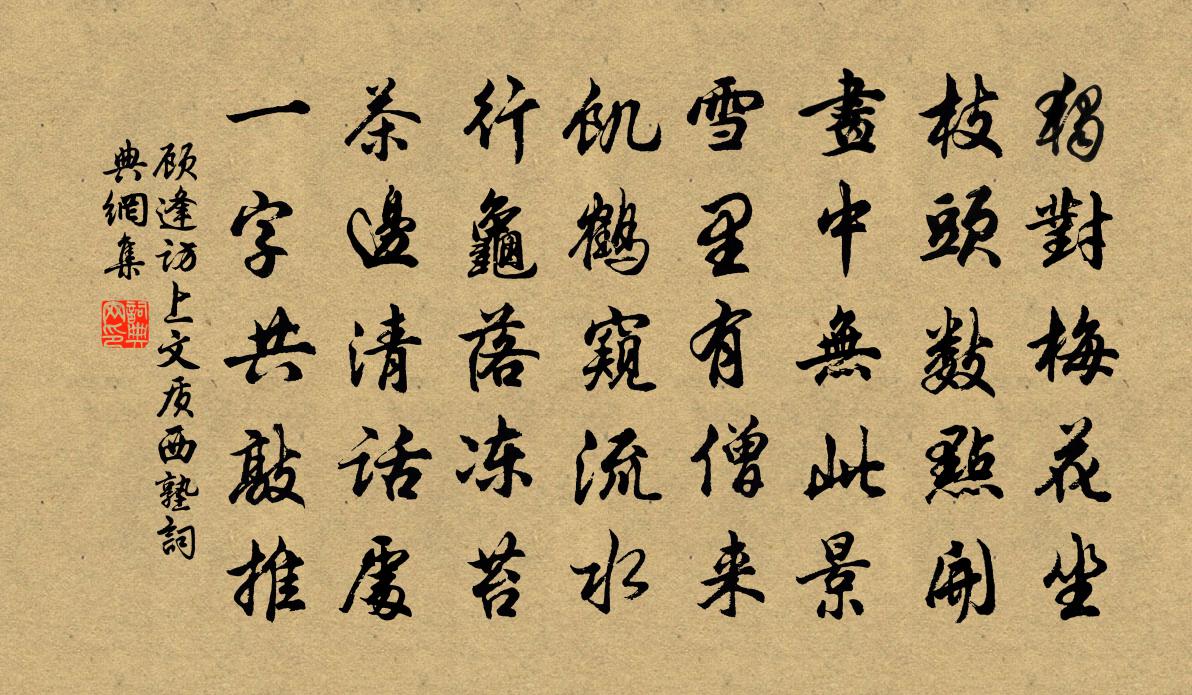 獨對梅花坐
枝頭數點開
畫中無此景
雪里有僧来
飢鶴窺流水
行龜落冻苔
茶邊清話處
一字共敲推
顾逢访上文质西塾詞
典網集
詞典
网印